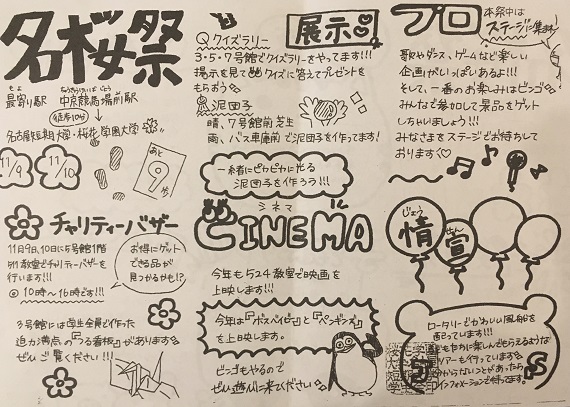 名桜祭
もより
最寄り駅
ちゅうきょうけいば
中京競馬場前駅
徒歩10分
名古屋短期大学・桜花学園大学
11/9
11/10
あと
9歩
チャリティーバザー
11月9日、10日に5号館1階
511教室でチャリティーバザーを
行います!!!
◎10時〜16時です!!!
お得にゲット
できる品が
見つかるかも!?
3号館には学生全員で作った
迫力満点の『うる看板』があります
ぜひご覧ください!!!
展示
Qクイズラリー
3・5・7号館でクイズラリーをやってます!!!
掲示を見てクイズに答えてプレゼントを
もらおう
泥団子
晴、7号館前芝生
雨、バス車庫前で泥団子を作ってます!
一緒にピカピカに光る
泥団子を作ろう!!!
シネマ
CINEMA
今年も524教室で映画を
上映します!!!
今年は『ボスベイビー』と『ペンギンズ』
を上映します。
ビンゴもやるので
ぜひ遊びに来てください
プロ
本祭中は
ステージに集まれ!
歌やダンス、ゲームなど楽しい
企画がいっぱいあるよ!!!
そして、一番のお楽しみはビンゴ
みんなで参加して景品をゲット
しちゃいましょう!!!
みなさまをステージでお待ちして
おります
じょう
情
せん
宣
ロータリーでかわいい風船を
配っています!!!
もたちに楽しんでもらえるような
ツアーも行っています
分からないことがあったら
インフォメーションも作ってます。